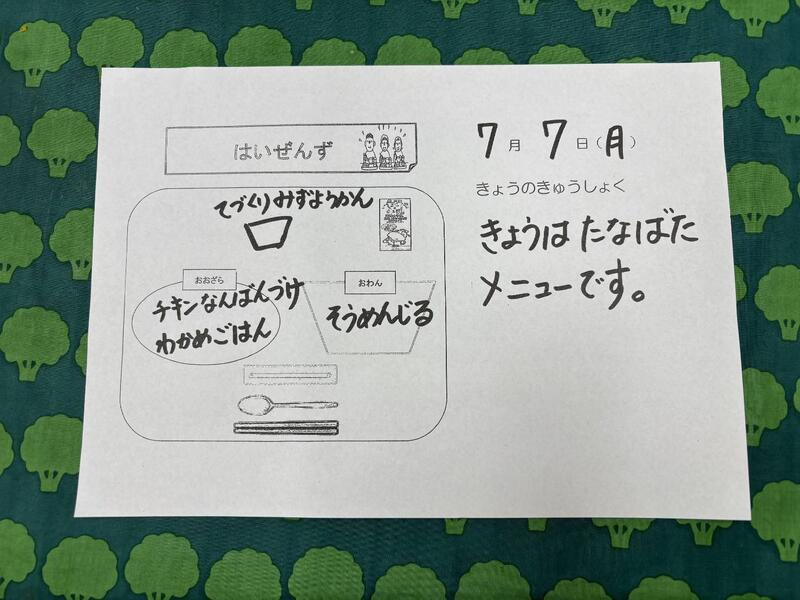 はいぜんず
7月7日(月)
きょうのきゅうしょく
きょうは たなばた
メニューです。
てづくりみずようかん
おおざら
チキンなんばんづけ
わかめごはん
おわん
そうめんじる